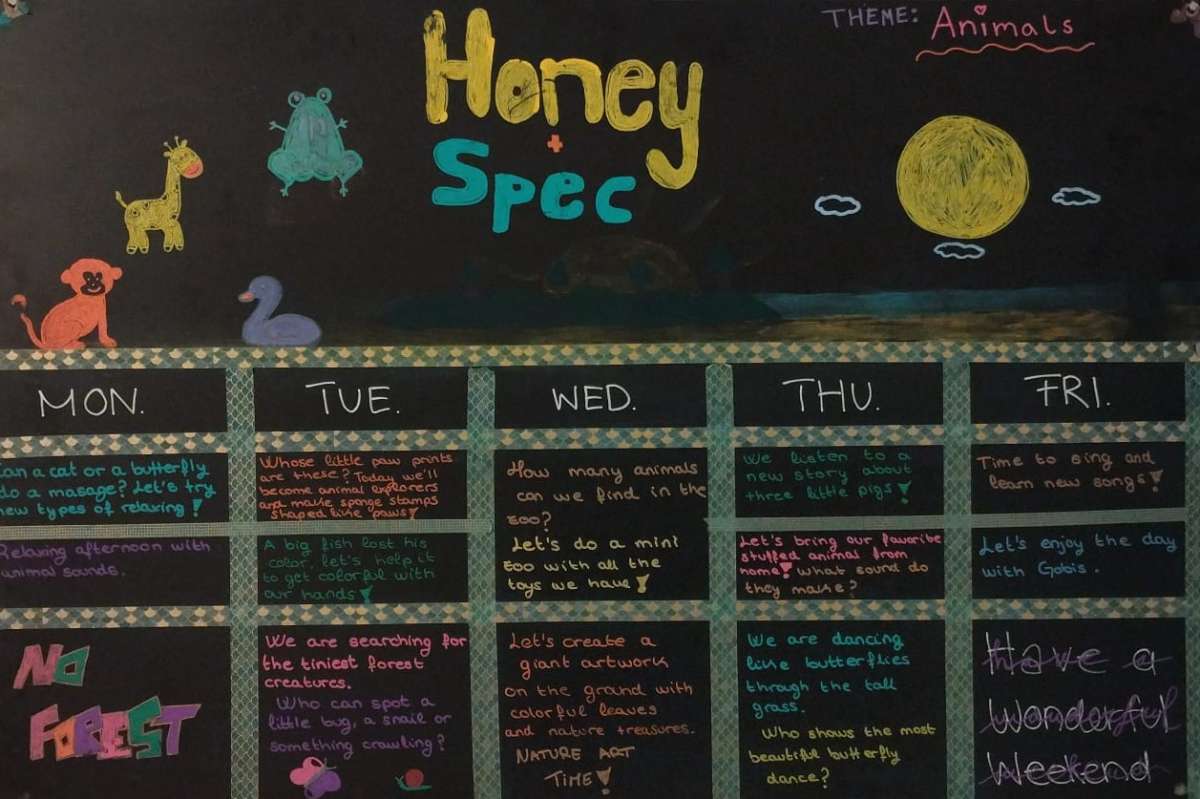 THEME: Animals
Honey
+
Spec
MON.
TUE.
WED.
THU.
FRI.
Can a cat or a butterfly
do a masage? Let's try
new types of relaxing!
Whose little paw prints
are these? Today we'll
become animal explorers
and make sponge stamps
shaped like paws!
How many animals
can we find in the
zoo?
Let's do a mini
zoo with all the
toys we have!
We listen to a
new story about
three little pigs!
Time to sing and
learn new songs!
Relaxing afternoon with
animal sounds.
A big fish lost his
color, let's help it
to get colorful with
our hands!
Let's bring our favorite
stuffed animal from
home! What sound do
they make?
Let's enjoy the day
with Gobis.
NO
FOREST
We are searching for
the tiniest forest
creatures.
Who can spot a
little bug, a snail or
something crawling?
Let's create a
giant artwork
on the ground with
colorful leaves
and nature treasures.
NATURE ART
TIME!
We are dancing
like butterflies
through the tall
grass.
Who shows the most
beautiful butterfly
dance?
Have a
Wonderful
Weekend